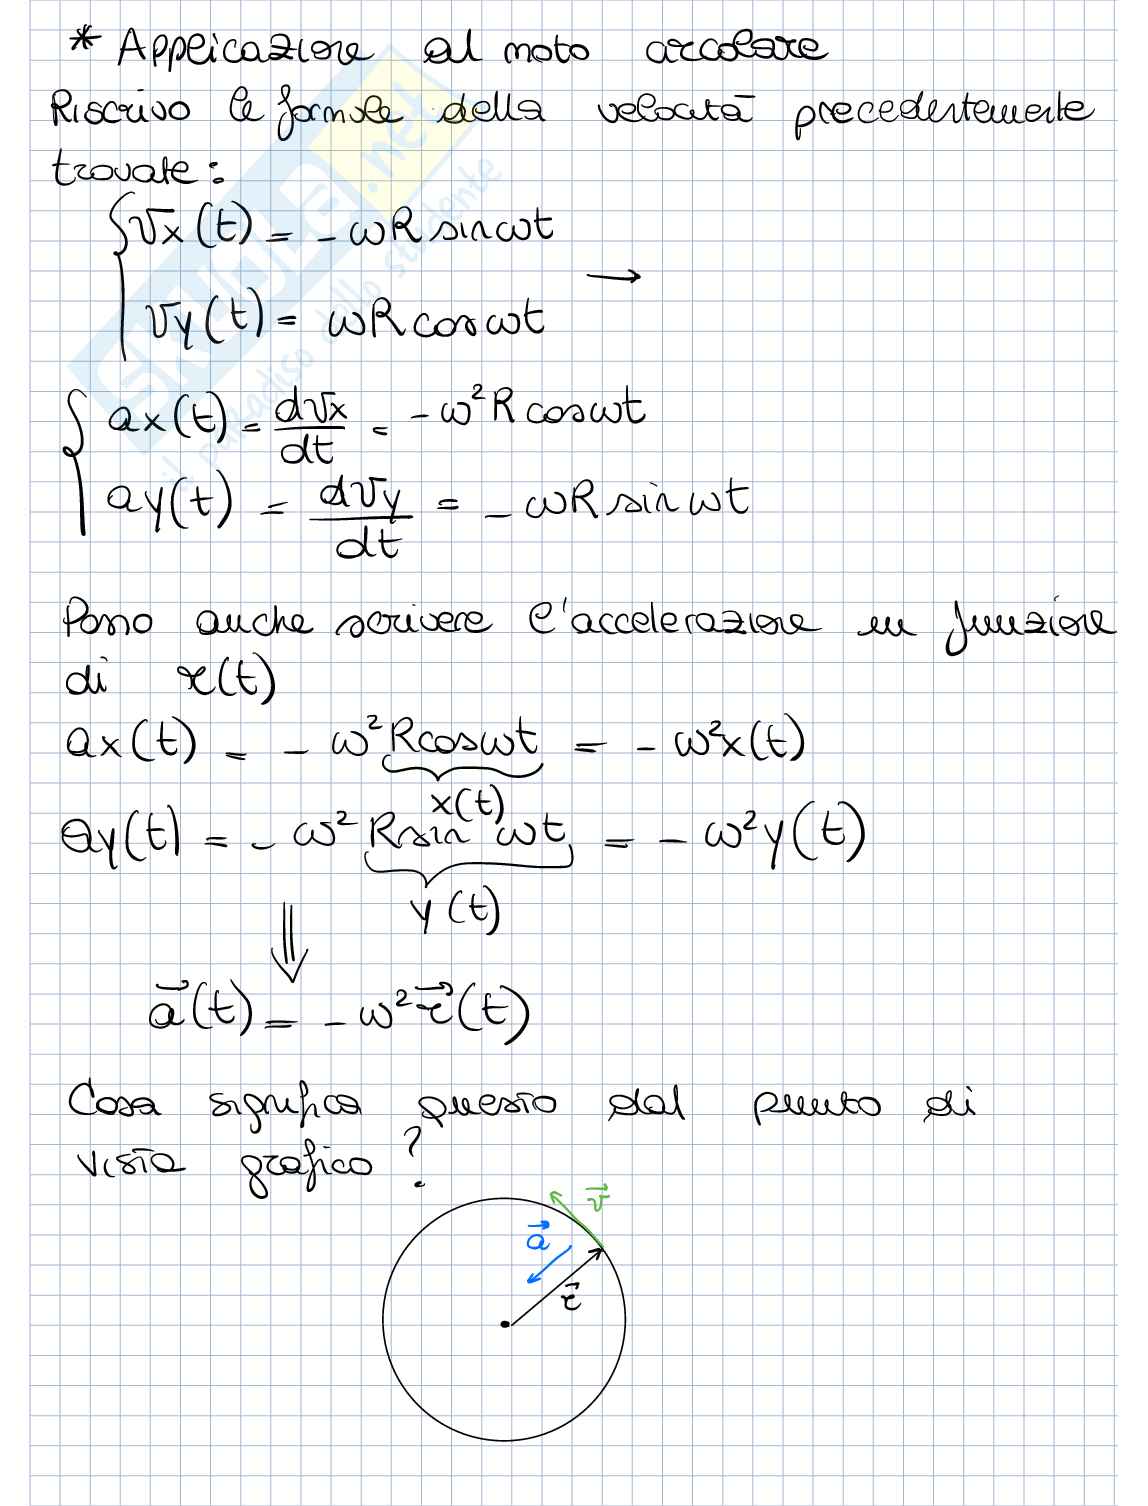 * Applicazione al moto circolare
Riscrivo le formule della velocità precedentemente
trovate:
vx(t) = -ωR sin ωt
→
vy(t) = ωR cos ωt
ax(t) = dvx/dt = -ω²R cos ωt
ay(t) = dvy/dt = -ωR sin ωt
Posso anche scrivere l'accelerazione in funzione
di r(t)
ax(t) = -ω²R cos ωt = -ω²x(t)
x(t)
ay(t) = -ω² R sin ωt = -ω²y(t)
y(t)
⇓
a⃗(t) = -ω²r⃗(t)
Cosa significa questo dal punto di
vista grafico?
v⃗
a⃗
r⃗
SKUOLA.net
il paradiso dello studente